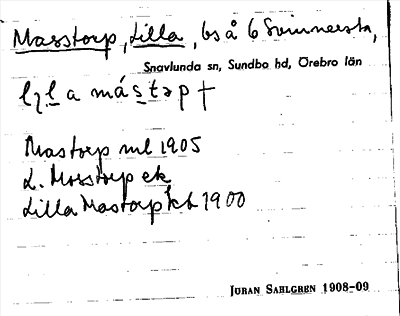 Masstorp, Lilla, bs å 6 Svinnersta,
Snavlunda sn, Sundbo hd, Örebro län
lɩl a mástəp †
Mastorp ml 1905
L. Mosstorp ek
Lilla Mastorp kb 1900
JÖRAN SAHLGREN 1908-09